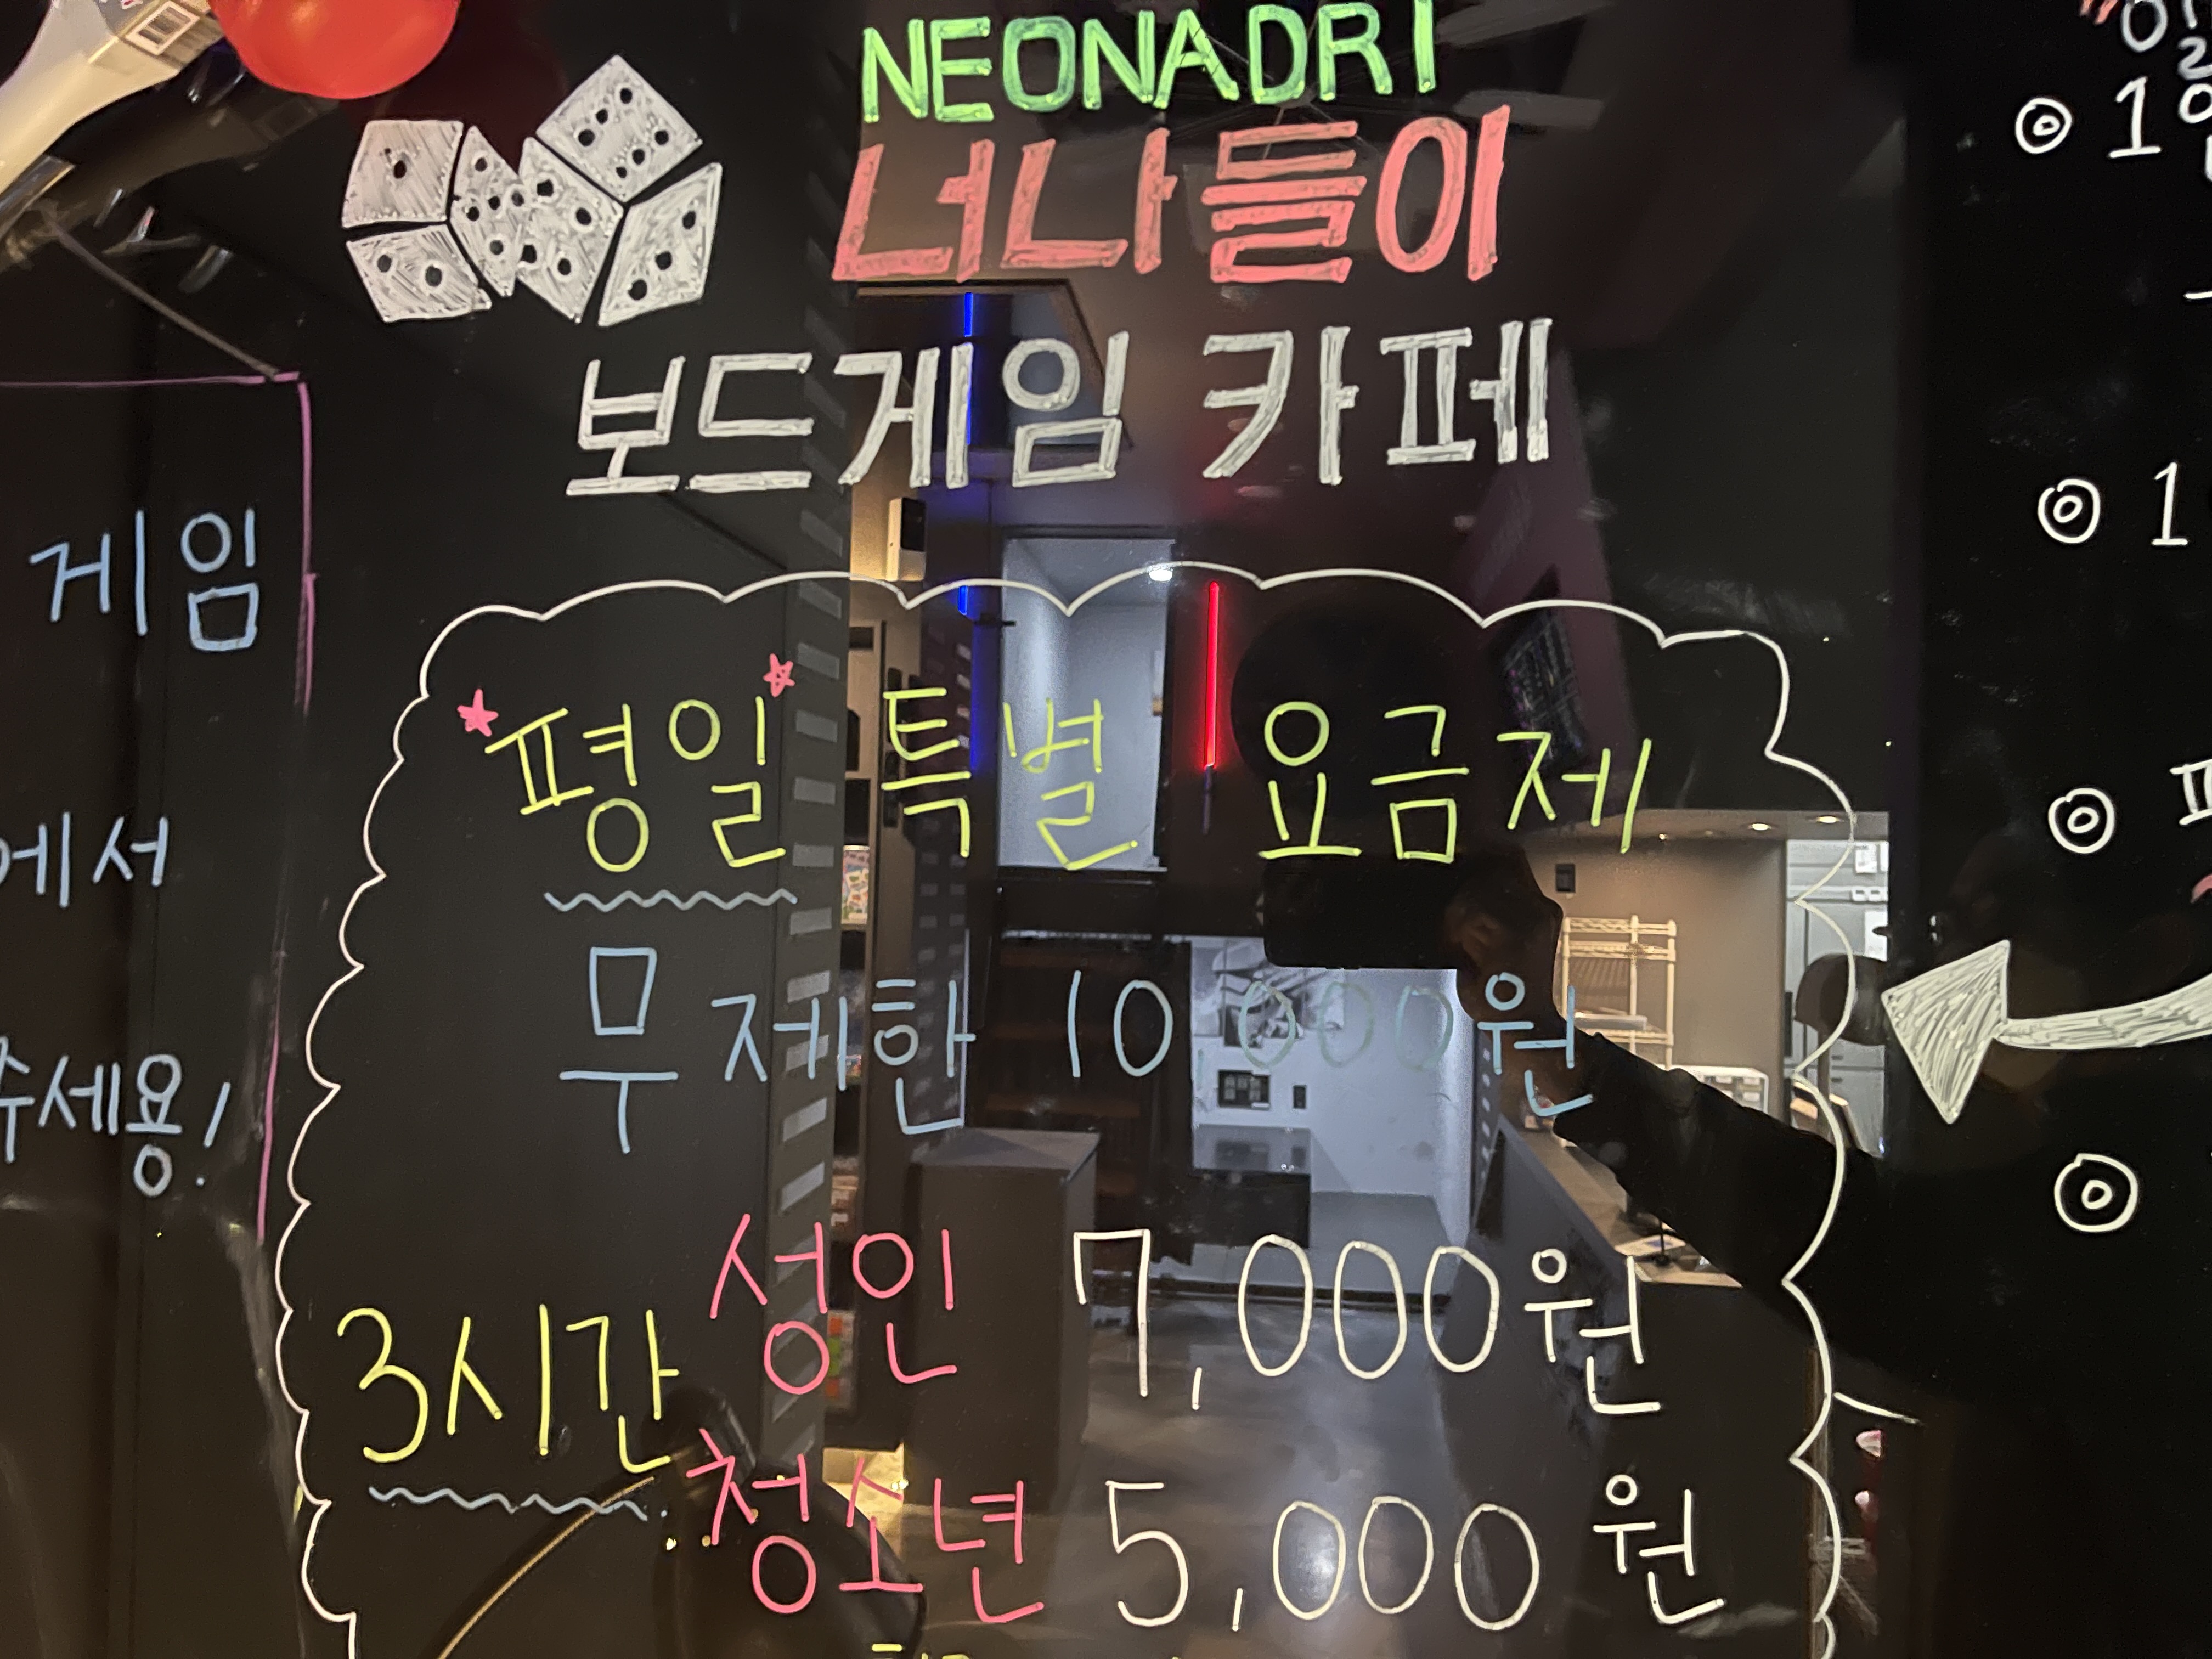 NEONADRI
너나들이
보드게임 카페
게임
에서
주세용!
평일 특별 요금제
무제한 10 000원
3시간
성인 7,000원
청소년 5,000원
◎ 1
◎ 1
◎
◎